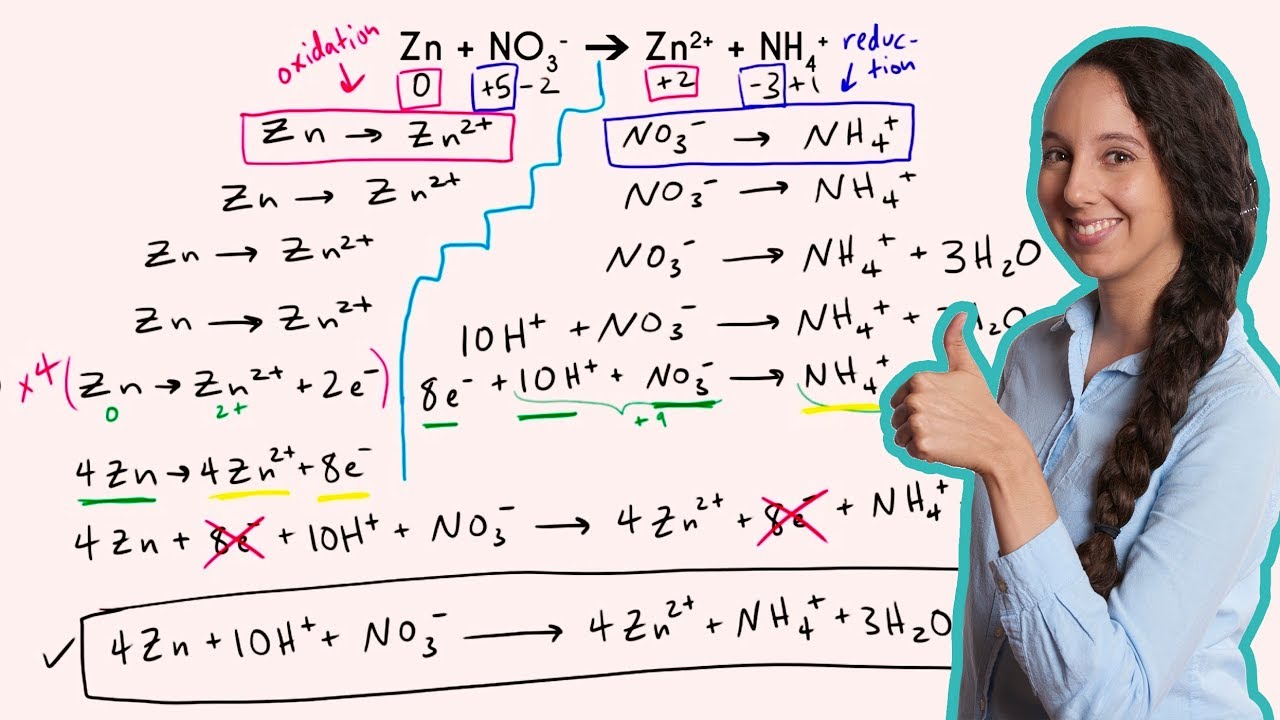 oxidation
Zn + NO₃⁻ → Zn²⁺ + NH₄⁺
reduc-
tion
0 +5 -2 +2 -3 +1
Zn → Zn²⁺ NO₃⁻ → NH₄⁺
Zn → Zn²⁺ NO₃⁻ → NH₄⁺
Zn → Zn²⁺ NO₃⁻ → NH₄⁺ + 3H₂O
Zn → Zn²⁺ 10H⁺ + NO₃⁻ → NH₄⁺ + H₂O
x4 (Zn → Zn²⁺ + 2e⁻) 8e⁻ + 10H⁺ + NO₃⁻ → NH₄⁺
0 2+ +9
4Zn → 4Zn²⁺ + 8e⁻
4Zn + 8e⁻ + 10H⁺ + NO₃⁻ → 4Zn²⁺ + 8e⁻ + NH₄⁺
✓ 4Zn + 10H⁺ + NO₃⁻ → 4Zn²⁺ + NH₄⁺ + 3H₂O